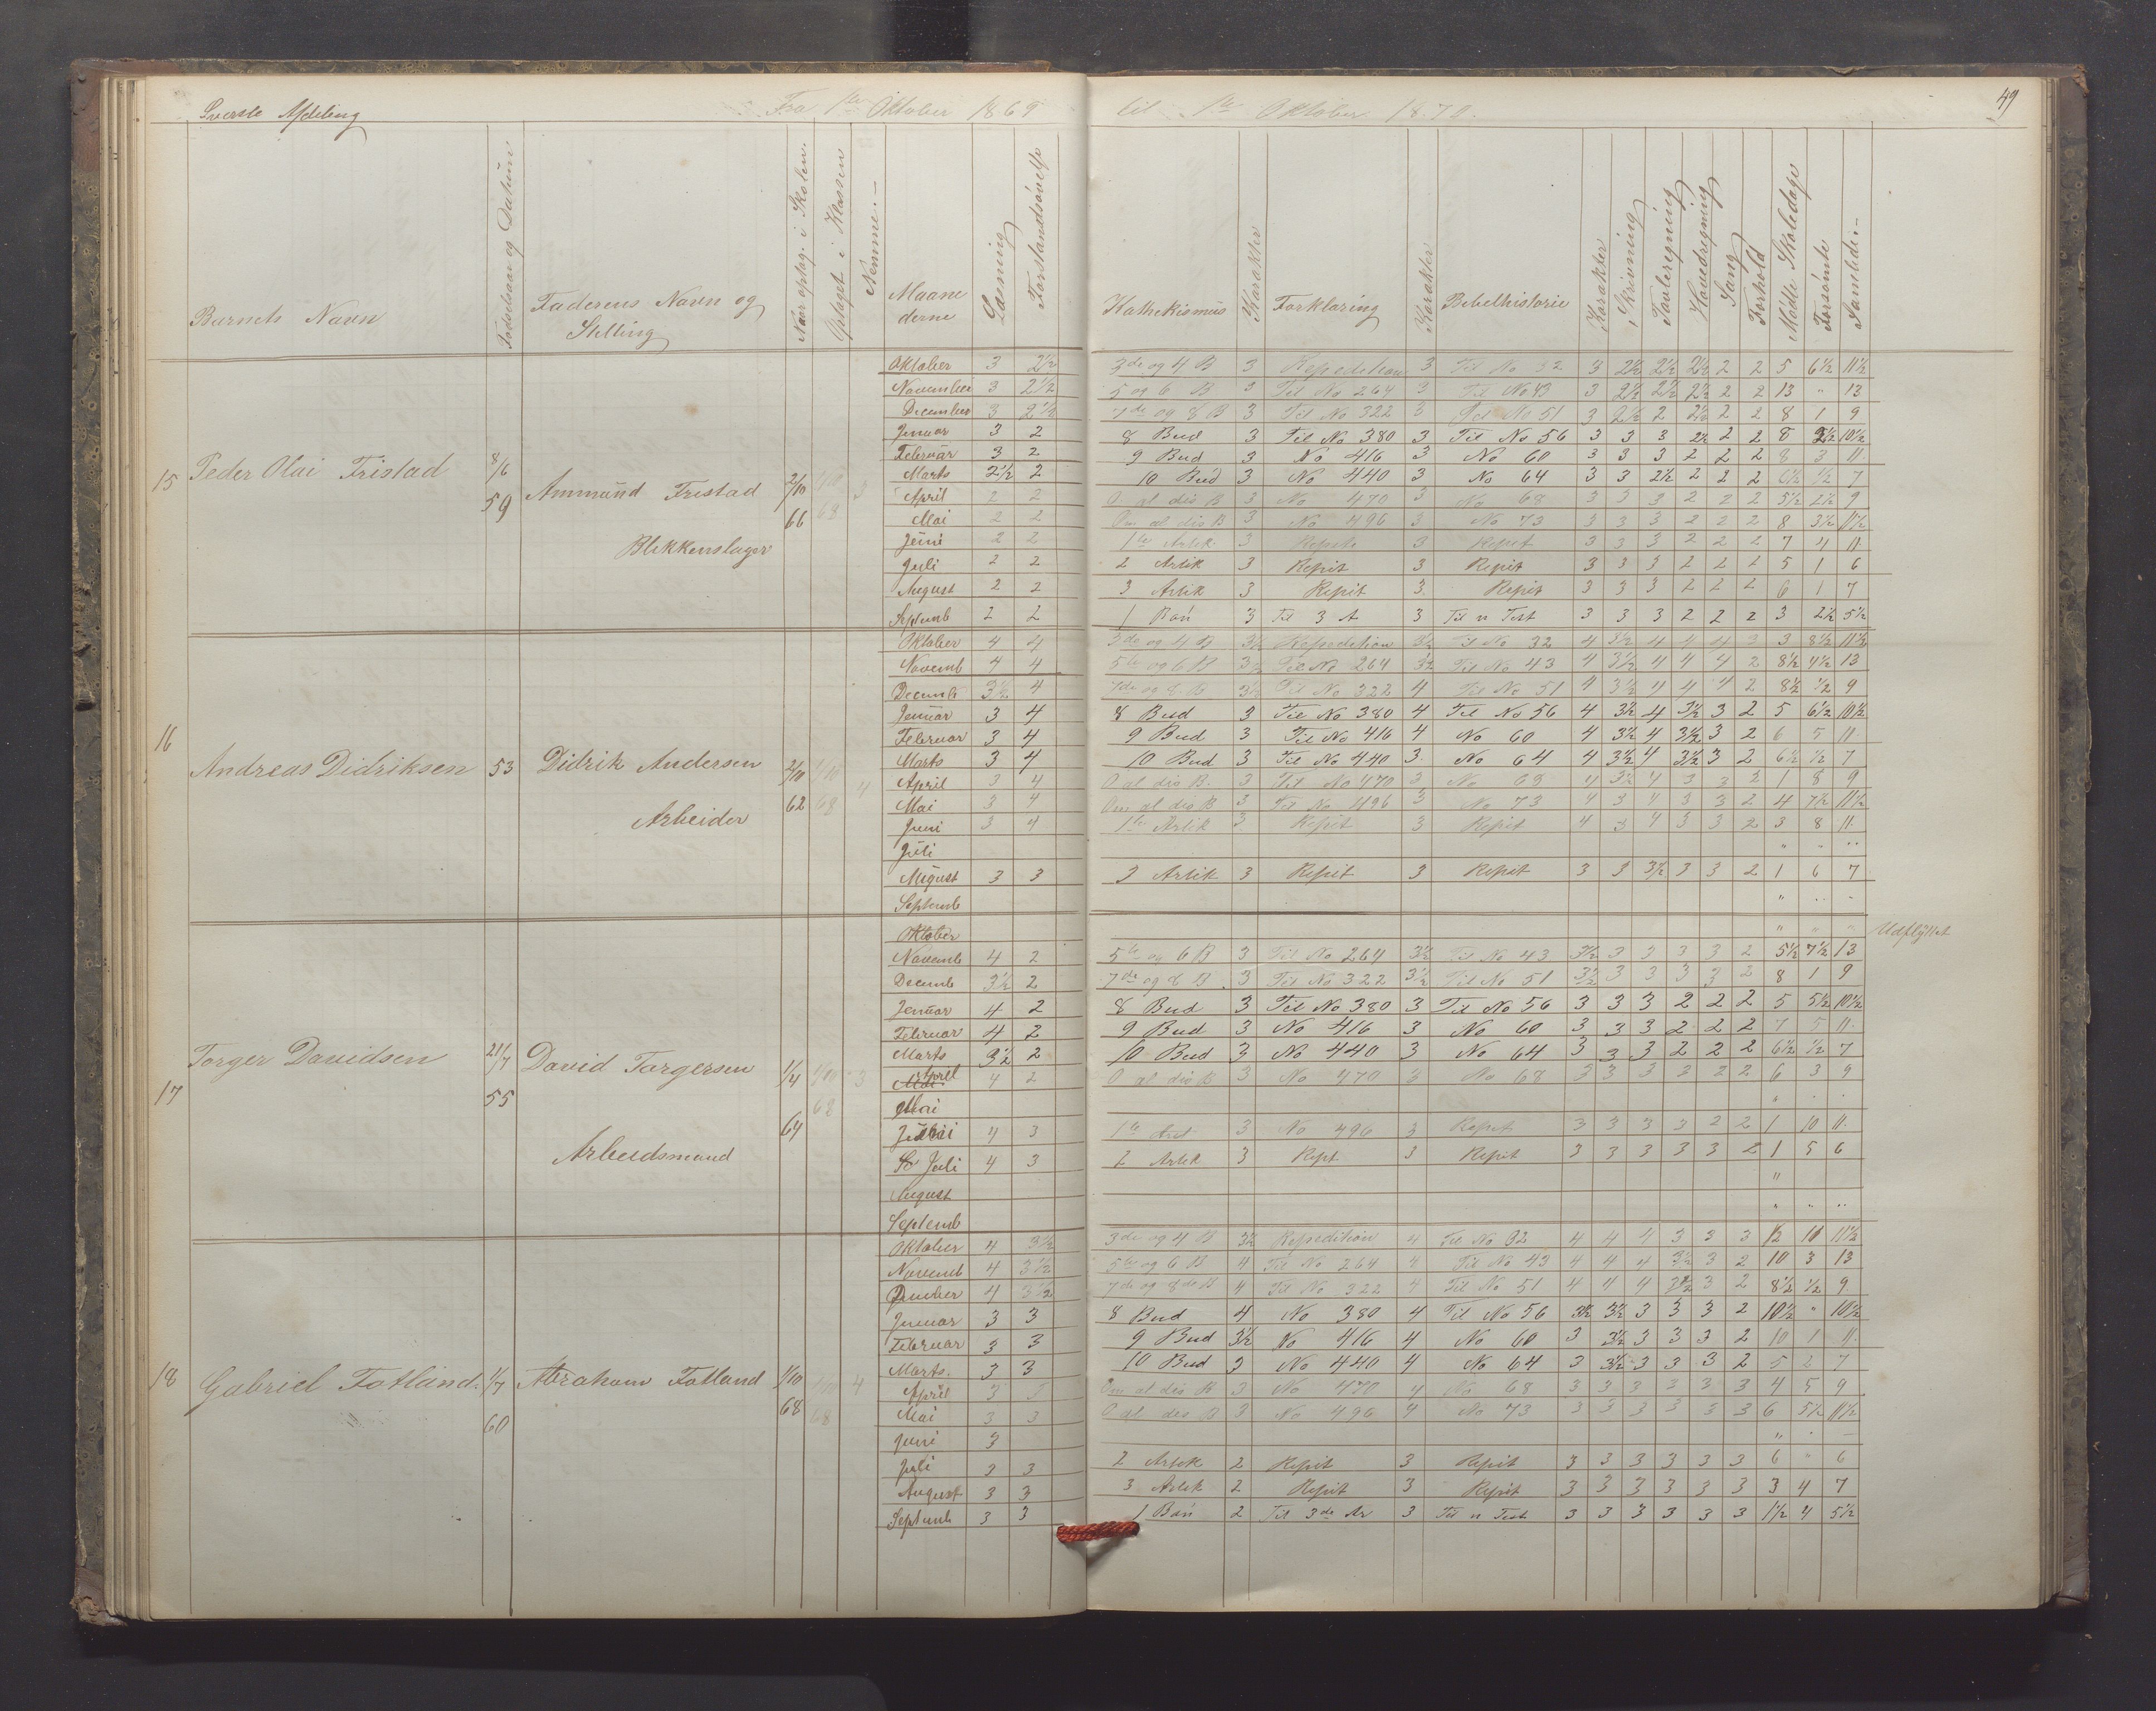 Øverste Afdeling Fra 1te Oktober 1869 til 1te Oktober 1870. 49
Barnets Navn Fødselsaar og Datum Faderens Navn og Stilling Naar optag. i Skolen. Optaget i Klassen Nemme.– Maanederne Læsning Forstandsøvelse Kathekismus Karakter Forklaring Karakter Bibelhistorie Karakter Skrivning Tavleregning Hovedregning Sang Forhold Mødte Skoledage Forsømte Samlede.–
15 Peder Olai Tristad 8/6 59 Ammund Tristad Blikkenslager 2/10 66 68 3
Oktober 3 2½ 3de og 4 B 3 Repedition 3 Til No 32 3 2½ 2½ 2½ 2 2 5 6½ 11½
November 3 2½ 5 og 6 B 3 Til No 264 3 Til No 43 3 2½ 2½ 2½ 2 2 13 " 13
December 3 2½ 7de og 8 B 3 Til No 322 3 Til No 51 3 2½ 2 2½ 2 2 8 1 9
Januar 3 2 8 Bud 3 Til No 380 3 Til No 56 3 3 3 2½ 2 2 8 2½ 10½
Februar 3 2 9 Bud 3 No 416 3 No 60 3 3 3 2 2 2 8 3 11
Marts 2½ 2 10 Bud 3 No 440 3 No 64 3 3 2½ 2 2 2 6½ ½ 7
April 2 2 O al dis B 3 No 470 3 No 68 3 3 3 2 2 2 5½ 2½ 9
Mai 2 2 Om al dis B 3 No 496 3 No 73 3 3 3 2 2 2 8 3½ 11½
Juni 2 2 1te Artik. 3 Repete 3 Repet 3 3 3 2 2 2 7 4 11
Juli 2 2 2 Artik 3 Repit 3 Repit 3 3 3 2 2 2 5 1 6
August 2 2 3 Artik 3 Repit 3. Repit 3 3 3 2 2 2 6 1 7
Septemb 2 2 1 Bøn 3 Til 3 A 3 Til n Test 3 3 3 2 2 2 3 2½ 5½
16 Andreas Didriksen 53 Didrik Andersen Arbeider 2/10 62 68 4
Oktober 4 4 3de og 4 B 3½ Repedition 3½ Til No 32 4 3½ 4 4 4 3 3 8½ 11½
Novemb 4 4 5te og 6 B 3½ Til No 264 3½ Til No 43 4 3½ 4 4 4 2 8½ 4½ 13
Decemb 3½ 4 7de og 8 B 3½ Til No 322 4 Til No 51 4 3½ 4 4 4 2 8½ ½ 9
Januar 3 4 8 Bud 3 Til No 380 4 Til No 56 4 3½ 4 3½ 3 2 5 6½ 10½
Februar 3 4 9 Bud 3 Til No 416 4 No 60 4 3½ 4 3½ 3 2 6 5 11
Marts 3 4 10 Bud 3 Til No 440 3. No 64 4 3½ 4 3½ 3 2 6½ ½ 7
April 3 4 O al dis B. 3 Til No 470 3 No 68 4 3½ 4 3 3 2 1 8 9
Mai 3 4 Om al dis B 3 Til No 496 3 No 73 4 3 4 3 3 2 4 7½ 11½
Juni 3 4 1te Artik 3 Repit 3 Repit 4 3 4 3 3 2 3 8 11
Juli " " "
August 3 3 3 Artik 3 Repit 3 Repit 3 3 3½ 3 3 2 1 6 7
Septemb " " "
17 Torger Davidsen 21/7 55 David Torgersen Arbeidsmand 1/4 64 68 3
Oktober " " " Udflyttet
Novemb 4 2 5te og 6 B 3 Til No 264 3½ Til No 43 3½ 3 3 3 3 2 5½ 7½ 13
Decemb 3½ 2 7de og 8 B. 3 Til No 322 3½ Til No 51 3½ 3 3 3 3 2 8 1 9
Januar 4 2 8 Bud 3 Til No 380 3 Til No 56 3 3 3 2 2 2 5 5½ 10½
Februar 4 2 9 Bud 3 No 416 3 No 60 3 3 3 2 2 2 7 5 11
Marts 3½ 2 10 Bud 3 No 440 3 No 64 3 3 3 2 2 2 6½ ½ 7
April 4 2 O al dis B 3 No 470 3 No 68 3 3 3 2 2 2 6 3 9
Mai " " "
Juni 4 3 1te Art 3 No 496 3 Repet 3 3 3 3 2 2 1 10 11
Juli 4 3 2 Artik 3 Rept 3 Repit 3 3 3 3 3 2 1 5 6
August "
Septemb " " "
18 Gabriel Fotland. 1/7 60 Abraham Fotland 1/10 68 68 4
Oktober 4 3½ 3de og 4 B 3½ Repedition 4 Til No 32 4 4 4 3 3 3 ½ 11 11½
Novemb 4 3½ 5te og 6 B 4 Til No 264 4 Til No 43 4 4 4 3½ 3 2 10 3 13
December 4 3½ 7de og 8de B 4 Til No 322 4 Til No 51 4 4 4 3½ 3 2 8½ ½ 9
Januar 3 3 8 Bud 4 No 380 4 Til No 56 3½ 3½ 3 3 3 2 10½ " 10½
Februar 3 3 9 Bud 3½ No 416 4 No 60 3 3½ 3 3 3 2 10 1 11
Marts. 3 3 10 Bud 3 No 440 4 No 64 3 3½ 3 3 3 2 5 2 7
April 3 3 Om al dis B 3 No 470 4 No 68 3 3 3 3 3 3 4 5 9
Mai 3 3 O al des B 3 No 496 4 No 73 3 3 3 3 3 3 6 5½ 11½
Juni 3 " " –
Juli 3 3 2 Artik 2 Repit 3 Repit 3 3 3 3 3 3 6 " 6
August 3 3 3 Artik 2 Repit 3 Repit 3 3 3 3 3 3 3 4 7
Septemb 3 3 1 Bøn 2 Til 3de Ar 3 Til n Test 3 3 3 3 3 3 1½ 4 5½